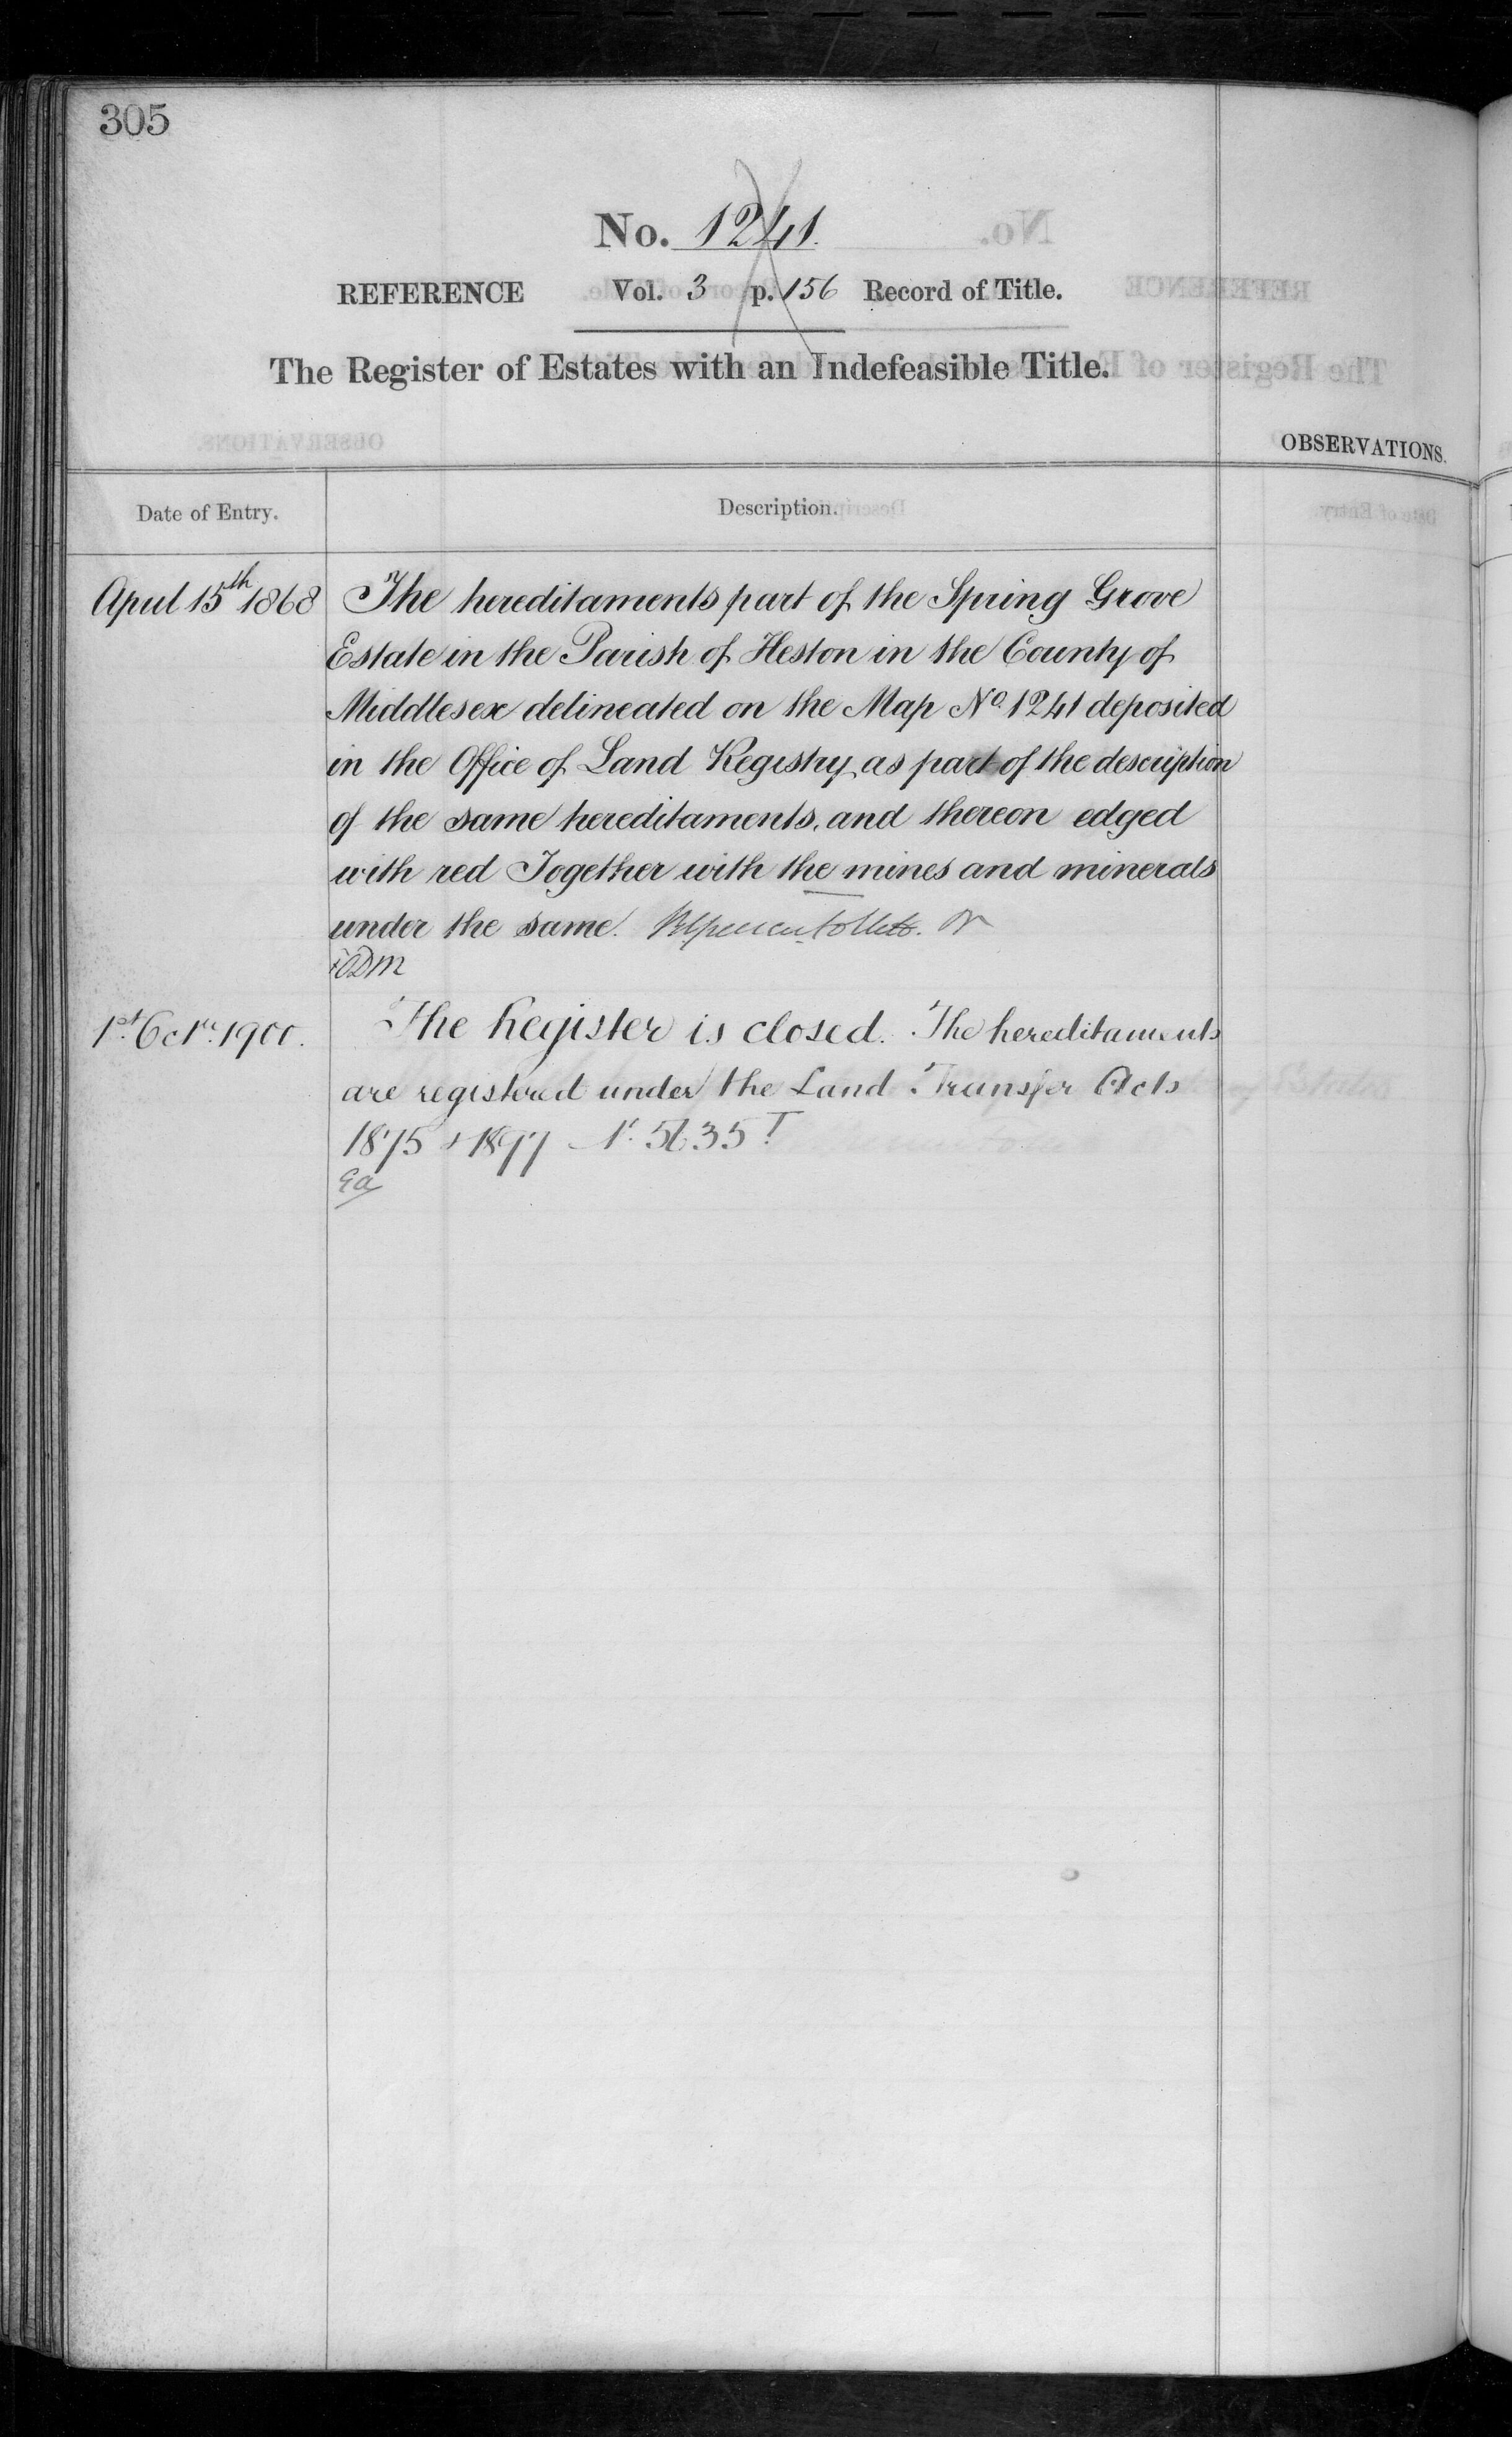 305
No. 1241.
REFERENCE Vol. 3 p. 156 Record of Title.
The Register of Estates with an Indefeasible Title.
OBSERVATIONS.
Date of Entry. Description.
April 15th 1868 The hereditaments part of the Spring Grove
Estate in the Parish of Heston in the County of
Middlesex delineated on the Map No. 1241 deposited
in the Office of Land Registry as part of the description
of the same hereditaments, and thereon edged
with red Together with the mines and minerals
under the same.
1st Octr. 1900. The Register is closed. The hereditaments
are registered under the Land Transfer Acts
1875 & 1897